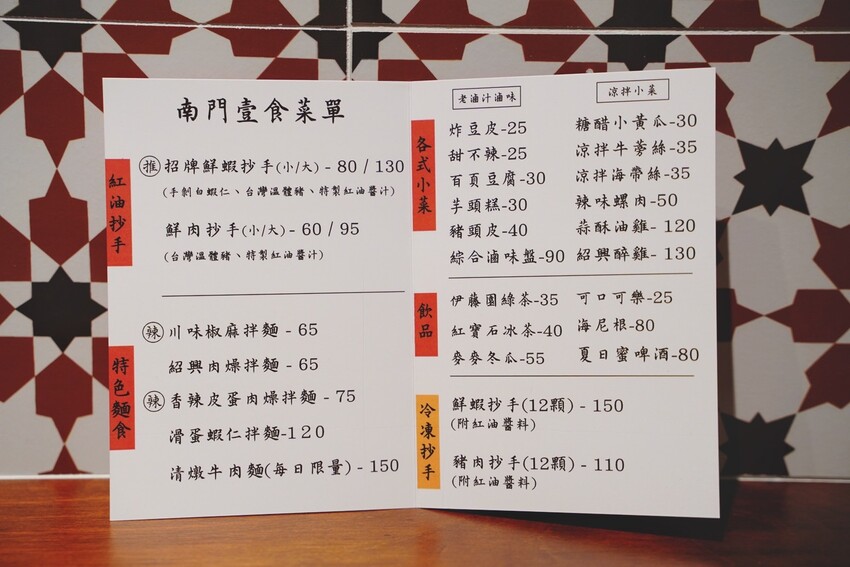 南門壹食菜單
紅油抄手
推 招牌鮮蝦抄手(小/大) - 80 / 130
(手剝白蝦仁、台灣溫體豬、特製紅油醬汁)
鮮肉抄手(小/大) - 60 / 95
(台灣溫體豬、特製紅油醬汁)
特色麵食
辣 川味椒麻拌麵 - 65
紹興肉燥拌麵 - 65
辣 香辣皮蛋肉燥拌麵 - 75
滑蛋蝦仁拌麵-120
清燉牛肉麵(每日限量) - 150
各式小菜
老滷汁滷味
炸豆皮-25
甜不辣-25
百頁豆腐-30
芋頭糕-30
豬頭皮-40
綜合滷味盤-90
涼拌小菜
糖醋小黃瓜-30
涼拌牛蒡絲-35
涼拌海帶絲-35
辣味螺肉-50
蒜酥油雞- 120
紹興醉雞- 130
飲品
伊藤園綠茶-35
紅寶石冰茶-40
麥麥冬瓜-55
可口可樂-25
海尼根-80
夏日蜜啤酒-80
冷凍抄手
鮮蝦抄手(12顆) - 150
(附紅油醬料)
豬肉抄手(12顆) - 110
(附紅油醬料)